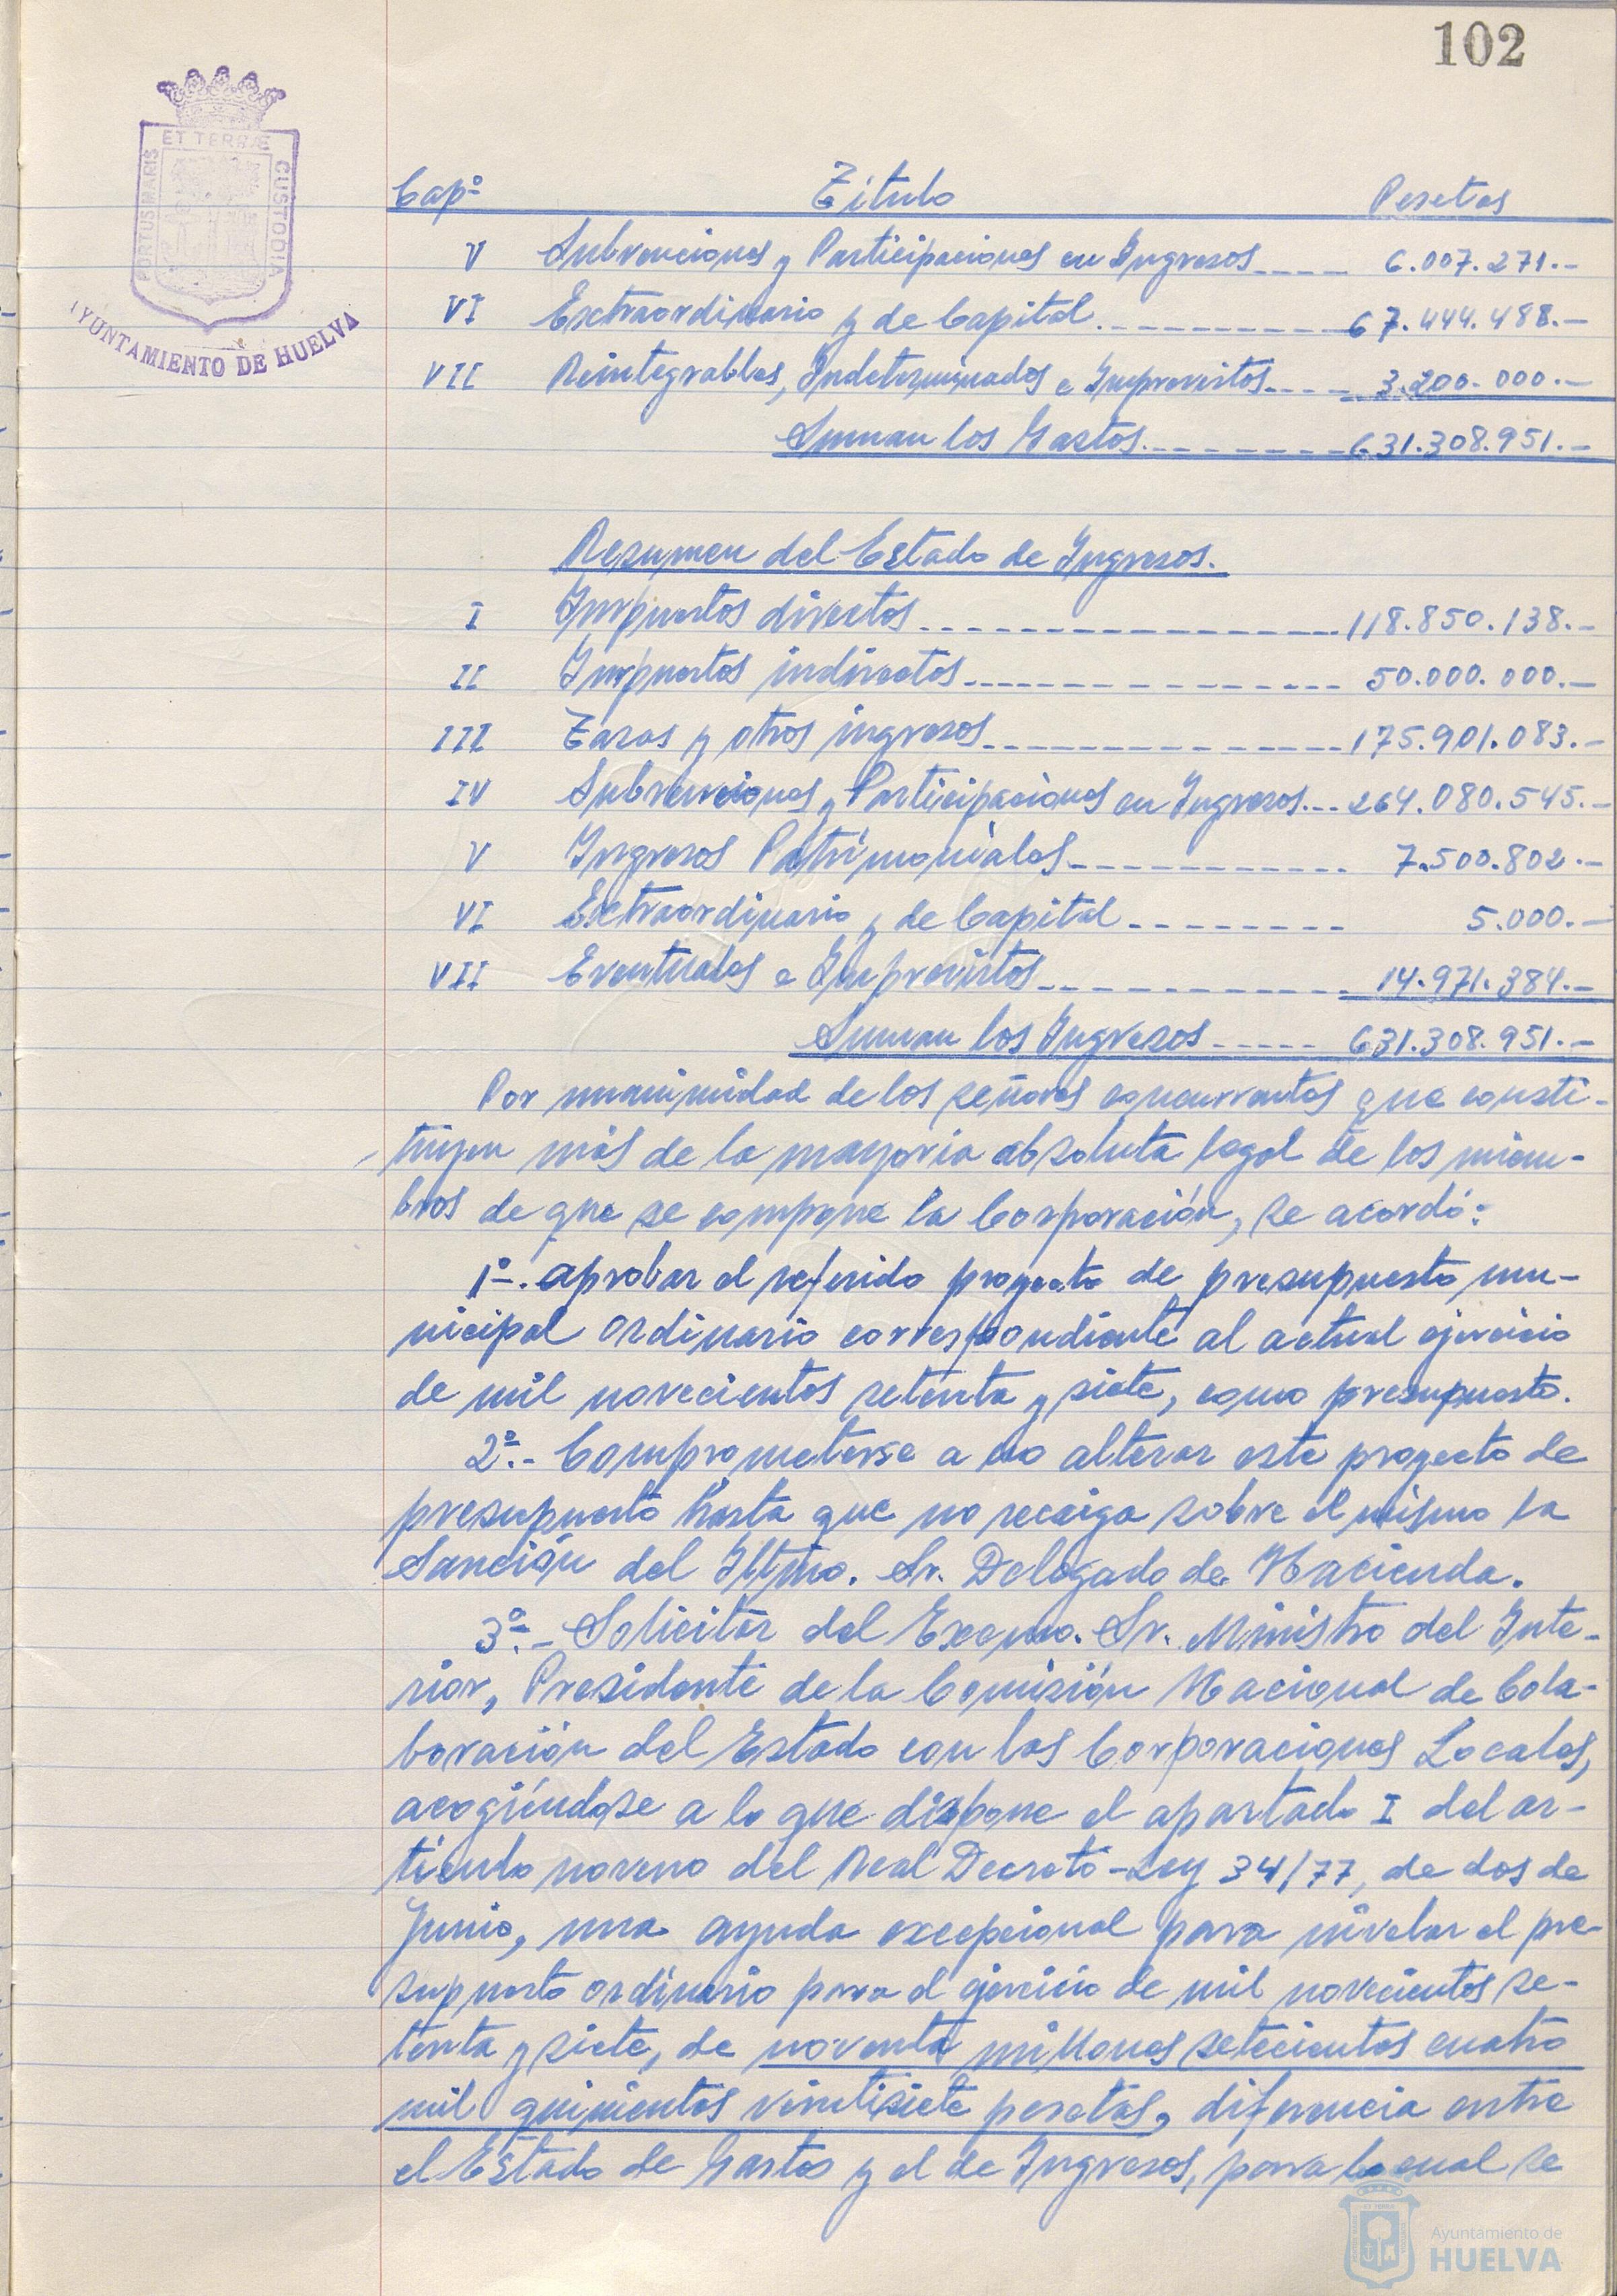 102
ET TERRÆ
PORTUS MARIS
CUSTODIA
AYUNTAMIENTO DE HUELVA
Capº Título Pesetas
V Subvenciones y Participaciones en Ingresos 6.007.271.-
VI Extraordinario y de Capital 67.444.488.-
VII Reintegrables, Indeterminados e Imprevistos 3.200.000.-
Suman los Gastos 631.308.951.-
Resumen del Estado de Ingresos.
I Impuestos directos 118.850.138.-
II Impuestos indirectos 50.000.000.-
III Tasas y otros ingresos 175.901.083.-
IV Subvenciones y Participaciones en Ingresos 264.080.545.-
V Ingresos Patrimoniales 7.500.802.-
VI Extraordinario y de Capital 5.000.-
VII Eventuales e Imprevistos 14.971.384.-
Suman los Ingresos 631.308.951.-
Por unanimidad de los señores concurrentes que consti-
tuyen más de la mayoria absoluta legal de los miem-
bros de que se compone la Corporación, se acordó:
1º-. aprobar el referido proyecto de presupuesto mu-
nicipal ordinario correspondiente al actual ejercicio
de mil novecientos setenta y siete, como presupuesto.
2º.- Comprometerse a no alterar este proyecto de
presupuesto hasta que no recaiga sobre el mismo la
Sanción del Iltmo. Sr. Delegado de Hacienda.
3º.- Solicitar del Excmo. Sr. Ministro del Inte-
rior, Presidente de la Comisión Nacional de Cola-
boración del Estado con las Corporaciones Locales,
acogiéndose a lo que dispone el apartado I del ar-
tículo noveno del Real Decreto-Ley 34/77, de dos de
Junio, una ayuda excepcional para nivelar el pre-
supuesto ordinario para el ejercicio de mil novecientos se-
tenta y siete, de noventa millones setecientos cuatro
mil quinientos veintisiete pesetas, diferencia entre
el Estado de Gastos y el de Ingresos, para lo cual se
Ayuntamiento de
HUELVA